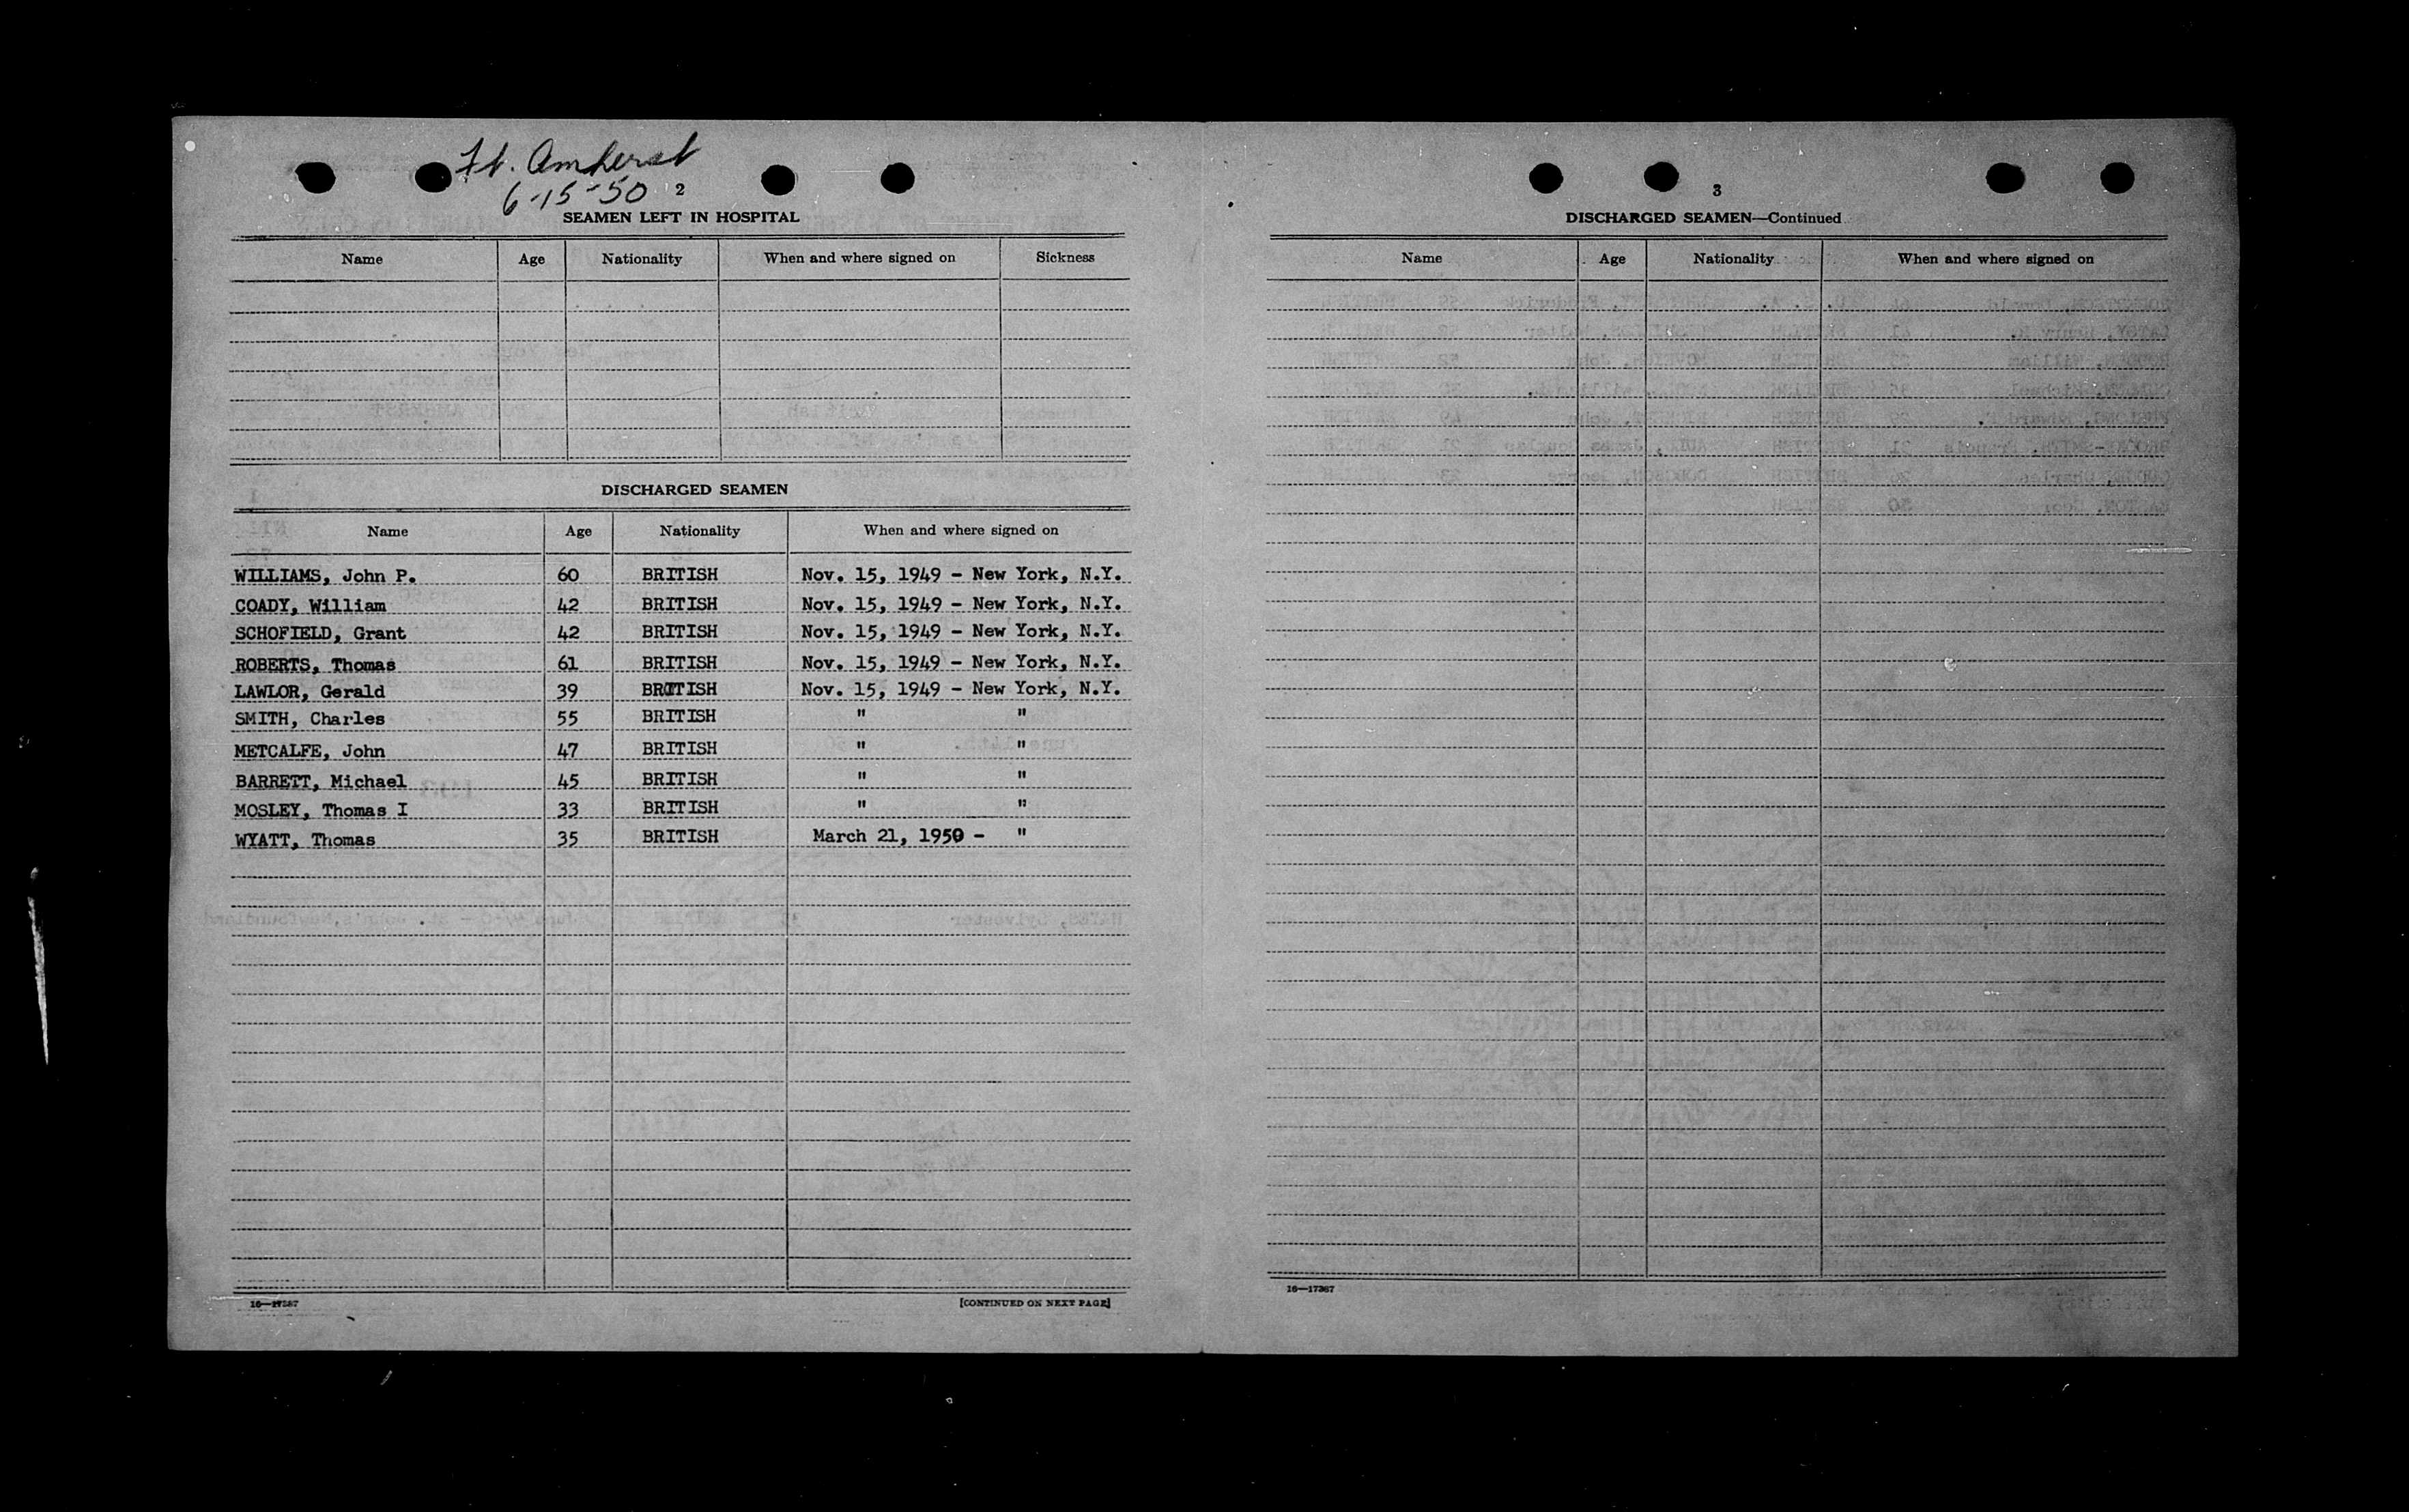 Ft. Amherst
6-15-50 2
SEAMEN LEFT IN HOSPITAL
Name Age Nationality When and where signed on Sickness
DISCHARGED SEAMEN
Name Age Nationality When and where signed on
WILLIAMS, John P. 60 BRITISH Nov. 15, 1949 - New York, N.Y.
COADY, William 42 BRITISH Nov. 15, 1949 - New York, N.Y.
SCHOFIELD, Grant 42 BRITISH Nov. 15, 1949 - New York, N.Y.
ROBERTS, Thomas 61 BRITISH Nov. 15, 1949 - New York, N.Y.
LAWLOR, Gerald 39 BRITISH Nov. 15, 1949 - New York, N.Y.
SMITH, Charles 55 BRITISH " "
METCALFE, John 47 BRITISH " "
BARRETT, Michael 45 BRITISH " "
MOSLEY, Thomas I 33 BRITISH " "
WYATT, Thomas 35 BRITISH March 21, 1950 - "
16—17367 [CONTINUED ON NEXT PAGE]
3
DISCHARGED SEAMEN—Continued
Name Age Nationality When and where signed on
16—17367